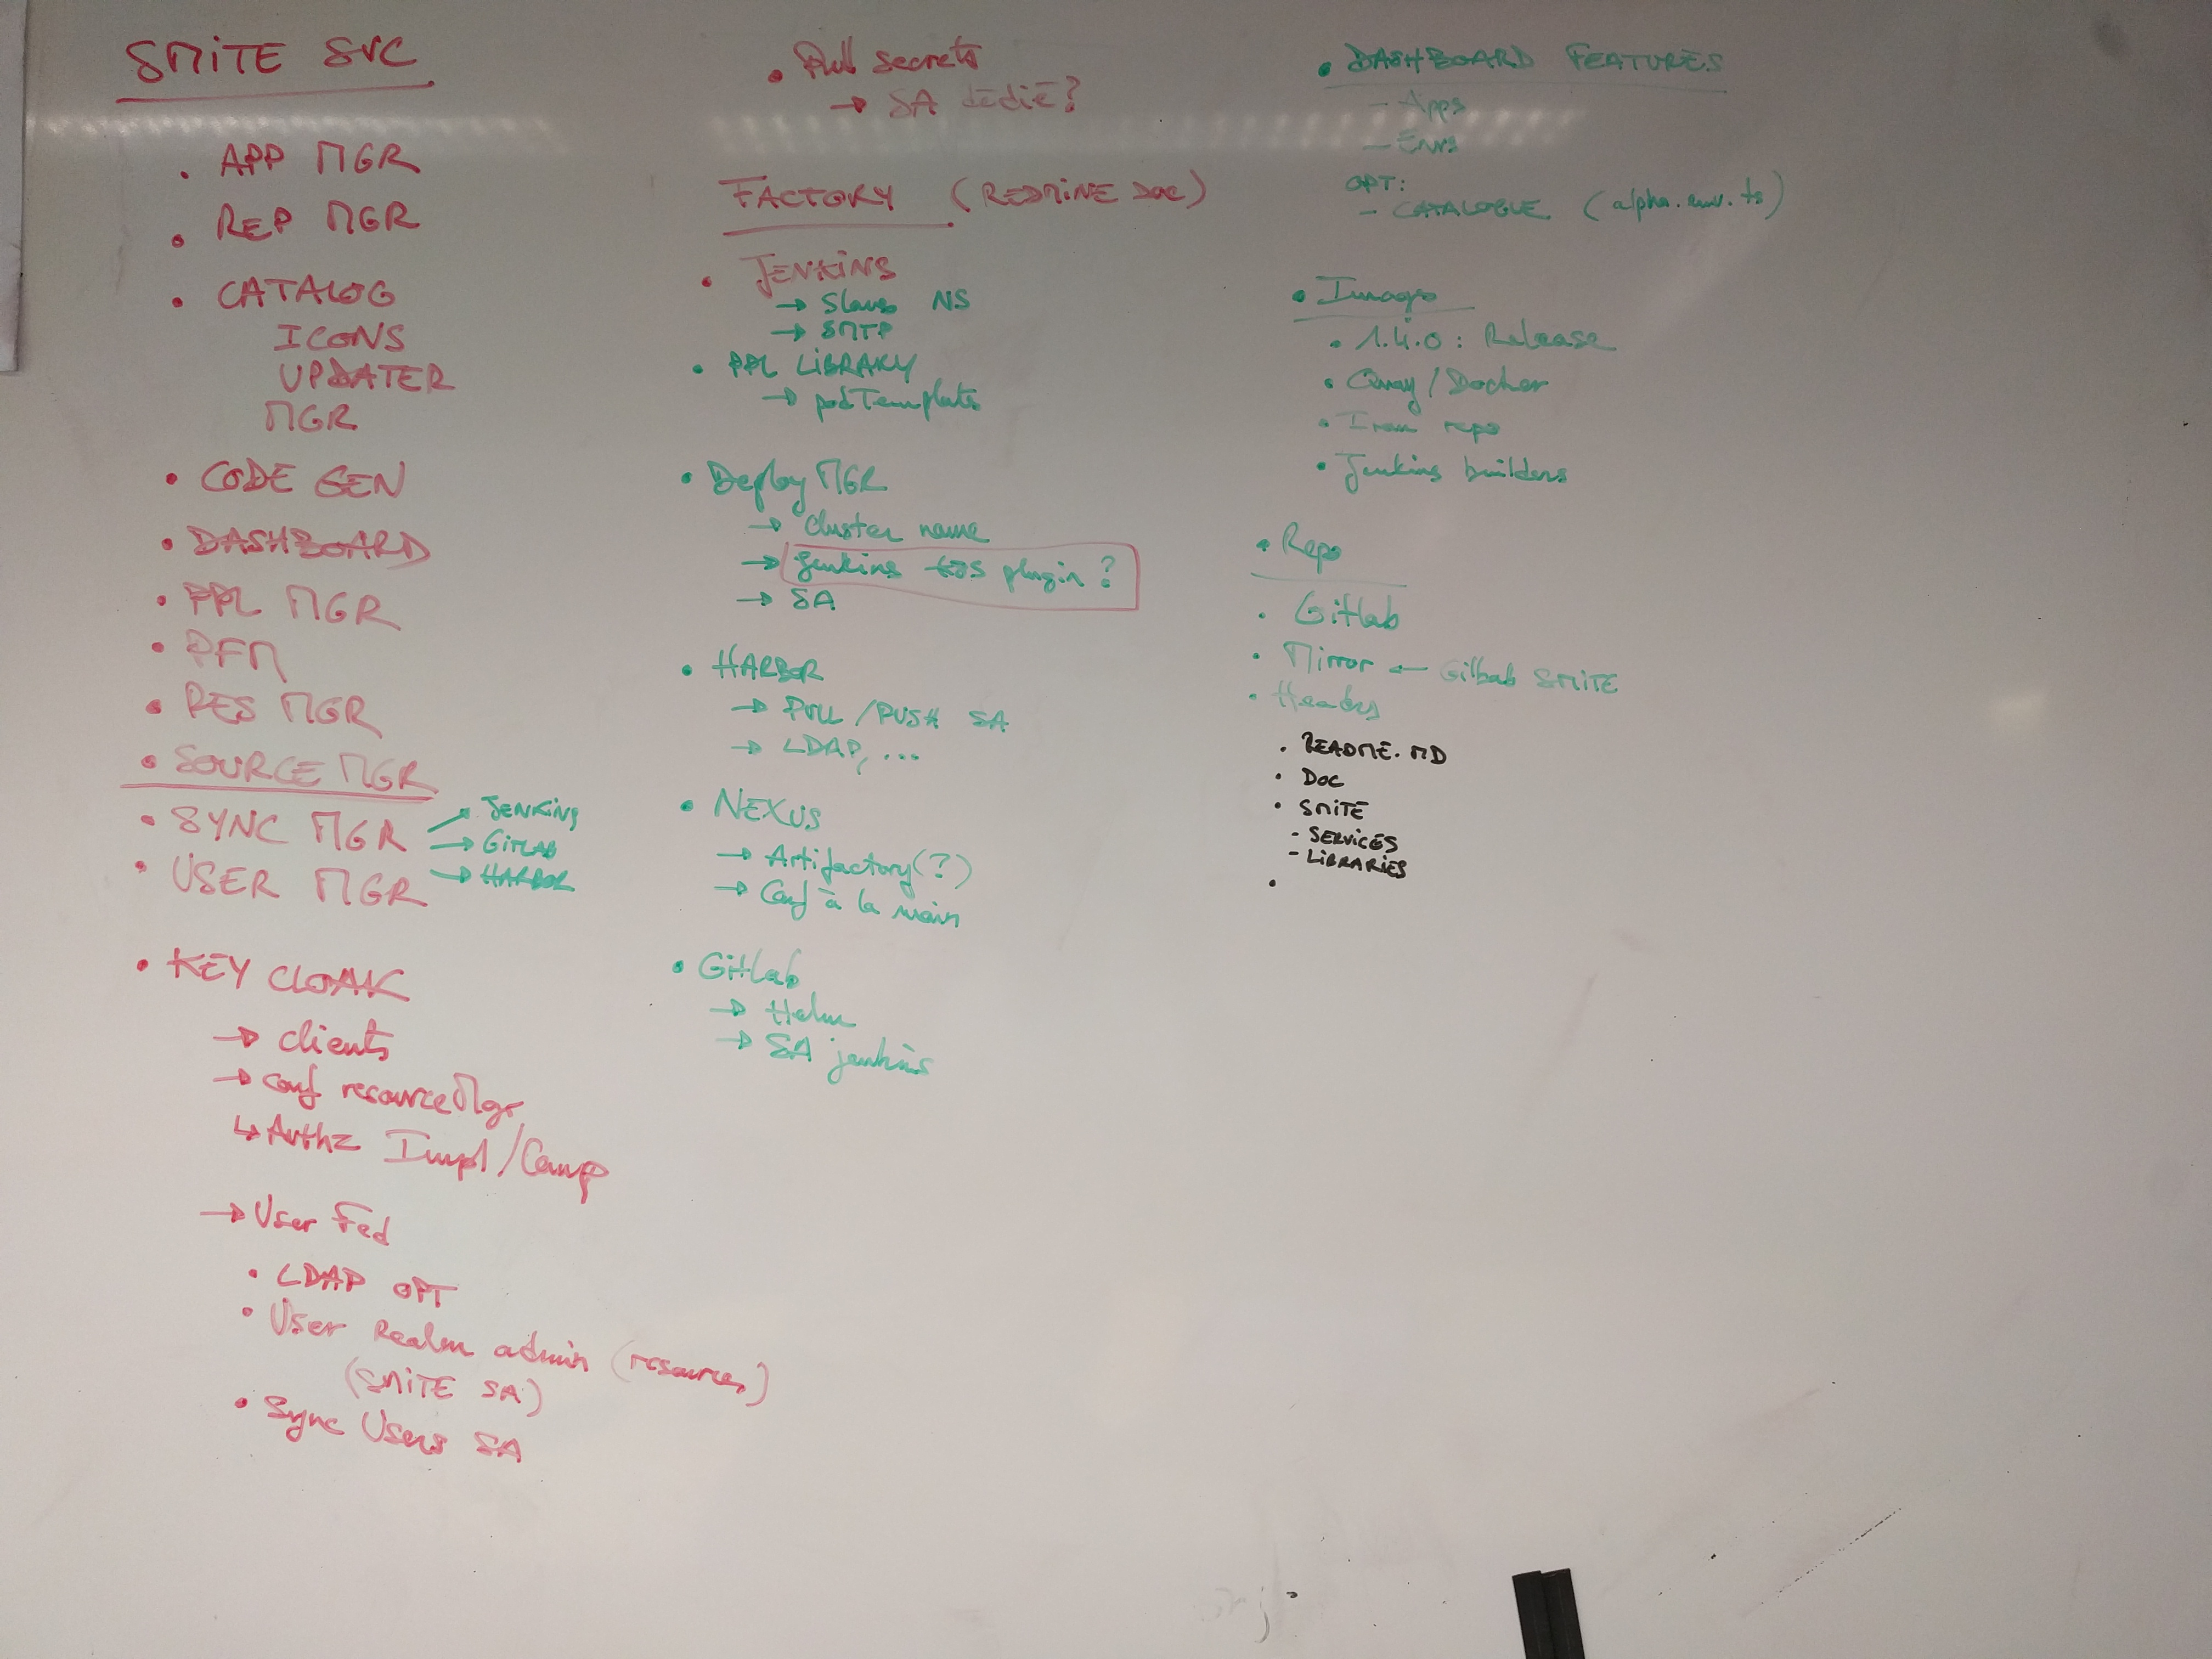 SMiTE SVC
• APP MGR
• REP MGR
• CATALOG
ICONS
UPDATER
MGR
• CODE GEN
• DASHBOARD
• PPL MGR
• PFM
• RES MGR
• SOURCE MGR
• SYNC MGR
→ JENKiNS
→ GiTLAB
→ HARBOR
• USER MGR
• KEY CLOAK
→ clients
→ conf resourceMgr
↳ Authz Impl/Comp
→ User Fed
• LDAP OPT
• User Realm admin (resources)
(SMiTE SA)
• Sync Users SA
• Pull secrets
→ SA dédié?
FACTORY (REDMiNE DOC)
• JENKiNS
→ Slaves NS
→ SMTP
• PPL LiBRARY
→ podTemplate
• Deploy MGR
→ cluster name
→ jenkins k8s plugin ?
→ SA
• HARBOR
→ PULL /PUSH SA
→ LDAP, ...
• NEXUS
→ Artifactory(?)
→ Conf à la main
• GitLab
→ Helm
→ SA jenkins
• DASHBOARD FEATURES
- Apps
- Envs
OPT:
- CATALOGUE (alpha.env.ts)
• Images
• 1.4.0 : Release
• Quay/Docker
• repo
• Jenkins builders
• Repo
• Gitlab
• Mirror ← Gitlab SMiTE
• Headers
• README.MD
• DOC
• SMiTE
- SERViCES
- LiBRARiES
•